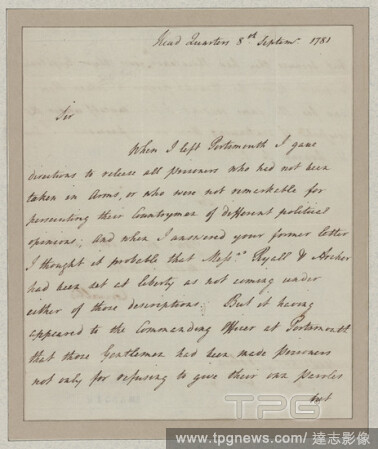 Head Quarters 8th Septemr 1781
Sir
When I left Portsmouth I gave
directions to release all prisoners who had not been
taken in Arms, or who were not remarkable for
persecuting their Countrymen of different political
opinions; And when I answered your former letter
I thought it probable that Messrs Ryall & Archer
had been set at liberty as not coming under
either of those descriptions. But it having
appeared to the Commanding Officer at Portsmouth
that those Gentlemen had been made prisoners
not only for refusing to give their own paroles
but
TPG
www.tpgnews.com / 達志影像